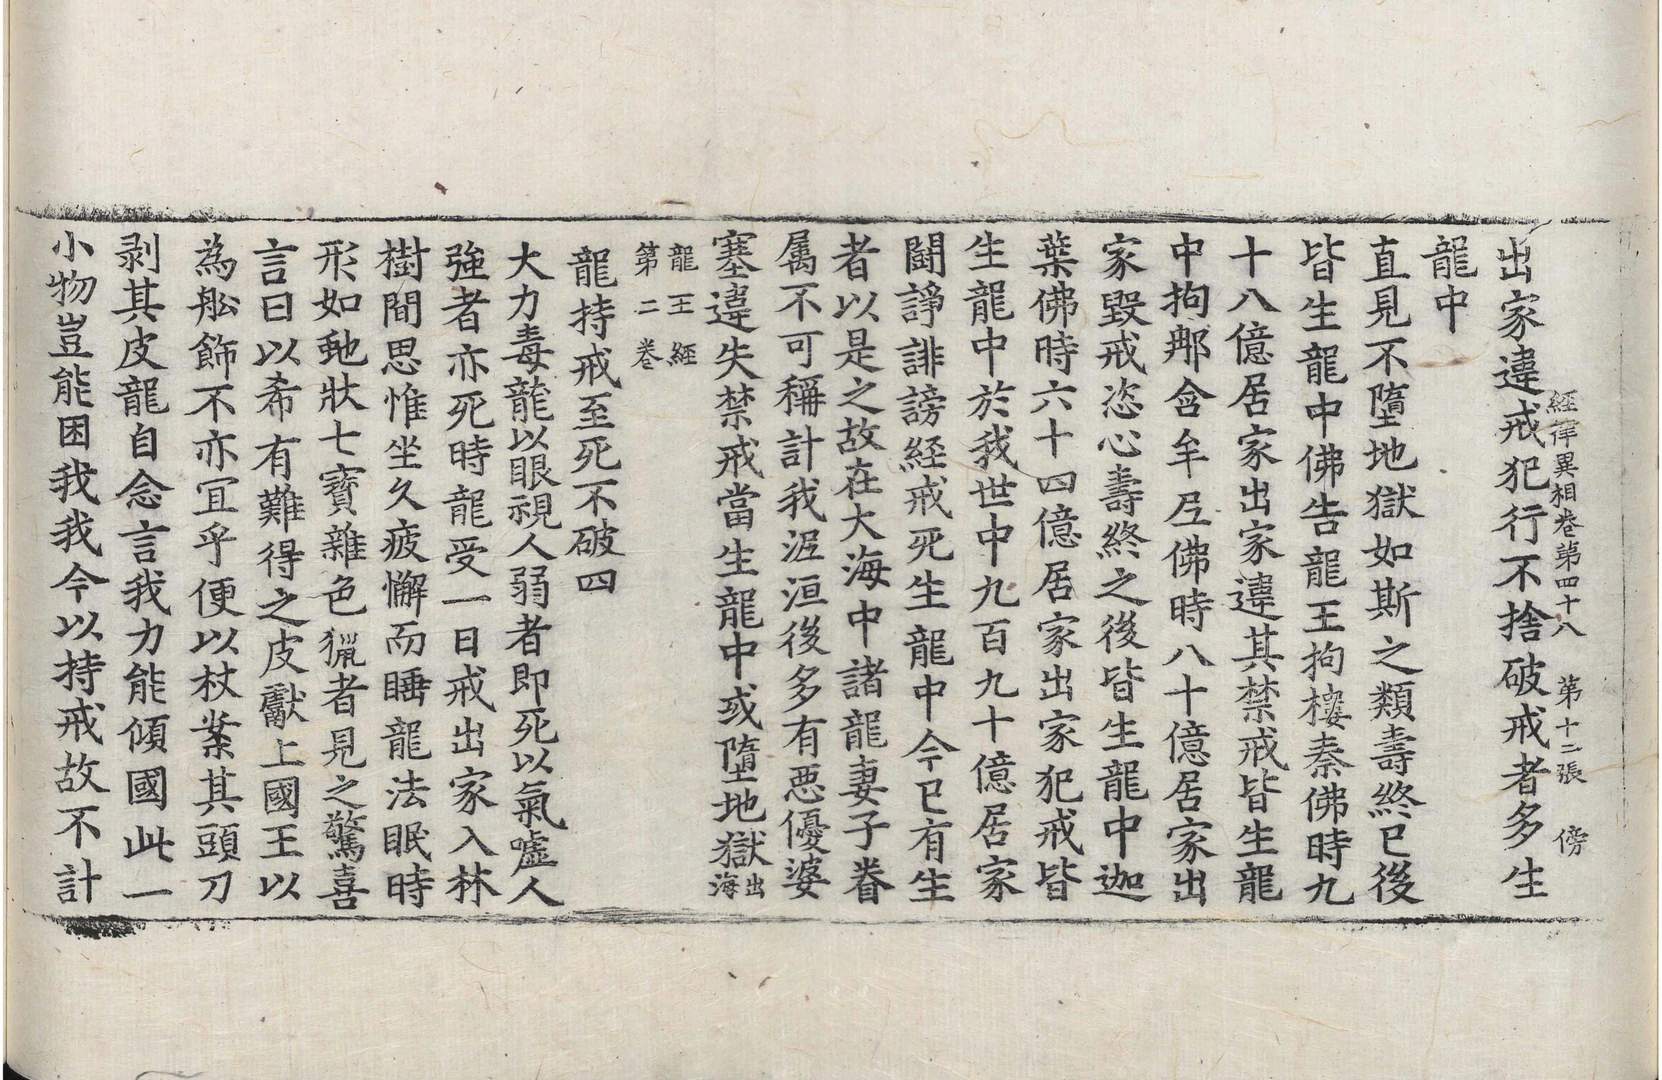 經律異相卷第四十八　第十二張　傍
出家違戒犯行不捨破戒者多生
龍中
直見不墮地獄如斯之類壽終已後
皆生龍中佛告龍王拘樓秦佛時九
十八億居家出家違其禁戒皆生龍
中拘那含牟尼佛時八十億居家出
家毀戒恣心壽終之後皆生龍中迦
葉佛時六十四億居家出家犯戒皆
生龍中於我世中九百九十億居家
鬪諍誹謗經戒死生龍中今已有生
者以是之故在大海中諸龍妻子眷
属不可稱計我泥洹後多有惡優婆
塞違失禁戒當生龍中或墮地獄出海
龍王經
第二卷
龍持戒至死不破四
大力毒龍以眼視人弱者即死以氣噓人
強者亦死時龍受一日戒出家入林
樹間思惟坐久疲懈而睡龍法眠時
形如虵狀七寶雜色獵者見之驚喜
言曰以希有難得之皮獻上國王以
為舩飾不亦冝乎便以杖案其頭刀
剥其皮龍自念言我力能傾國此一
小物豈能困我我今以持戒故不計